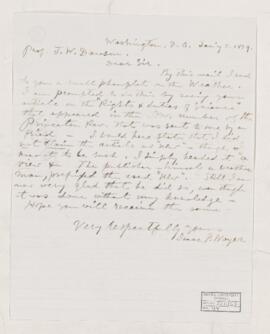 Washington, D.C. Jan'y 2. 1879.
Prof. J. W. Dawson.
Dear Sir.
By this mail I send
to you a small pamphlet on the Weather.
I am prompted to do this by seeing your
article on the Rights & duties of Science
that appeared in the number of the
Princeton Rev. that was sent to me by a
friend. I would here state that I did
not claim the article as "New" - though, it
meant to be such. I simply headed it a
view &c. The publisher
man, prefixed the word "New". Still I am
now very glad that he did so, even though
it was done without my knowledge -
Hope you will receive the same
Very respectfully yours
Isaac P. Noyes